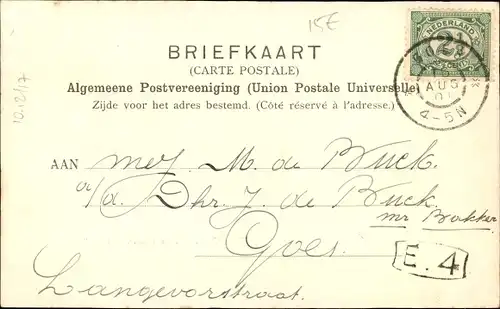 15E
NEDERLAND
2½
CENT
BRIEFKAART
(CARTE POSTALE)
Algemeene Postvereeniging (Union Postale Universelle)
Zijde voor het adres bestemd. (Côté réservé à l'adresse.)
AUG
4-5N
10.12/17
AAN mej. M. de Buck.
a/d. Dhr. J. de Buck
mr Bakker
Goes.
E. 4
Langevorststraat.